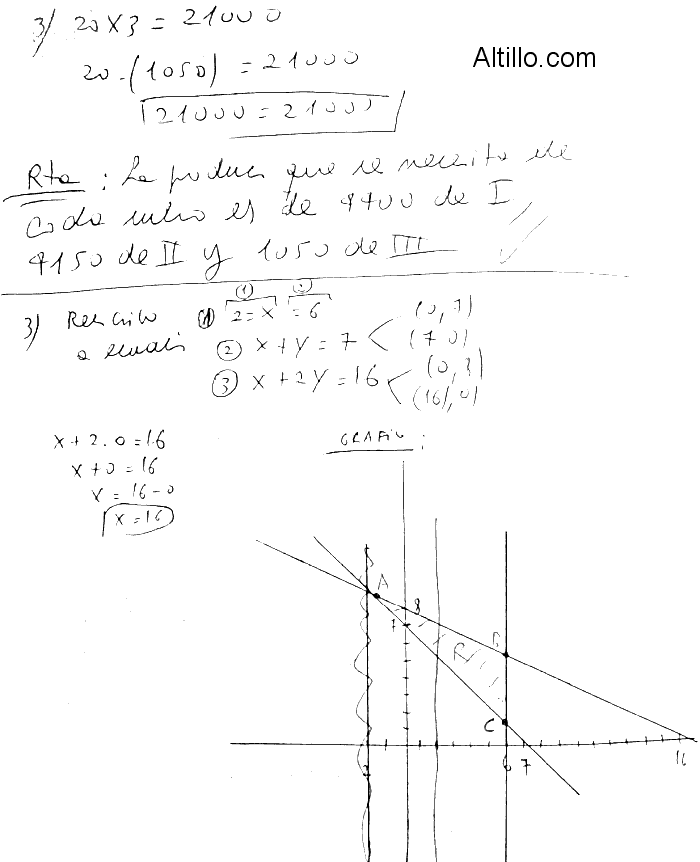 3) 20 X3 = 21000
Altillo.com
20 . (1050) = 21000
21000 = 21000
Rta : La que se necesita de
cada rubro es de 4400 de I,
4150 de II y 1050 de III
(1) (2)
3) (1) 2 = x = 6
(0, 7)
(2) x + y = 7
(7 0)
(3) x + 2y = 16
(0, 8)
(16, 0)
x + 2 . 0 = 16
x + 0 = 16
x = 16 - 0
x = 16
GRAFICO :
A
8
7
B
R
C
2
6 7
16